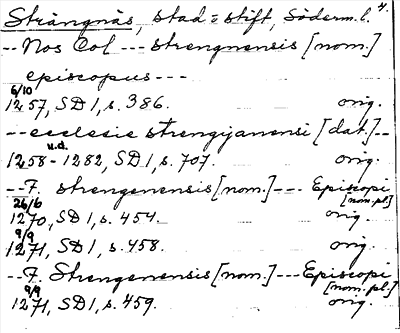 Strängnäs, stad o stift, Söderm. l. 4.
-- Nos Col --- strengnensis [nom.]
episcopus ---
6/10
1257, SD 1, s. 386. orig.
-- ecclesie strengijanensi [dat.] --
u.d.
1258 - 1282, SD 1, s. 707. orig.
-- F. strengenensis [nom.] --- Episcopi
[nom.pl.]
26/6
1270, SD 1, s. 454. orig.
9/9
1271, SD 1, s. 458. orig.
-- F. Strengenensis [nom.] --- Episcopi
[nom.pl.]
9/9
1271, SD 1, s. 459. orig.